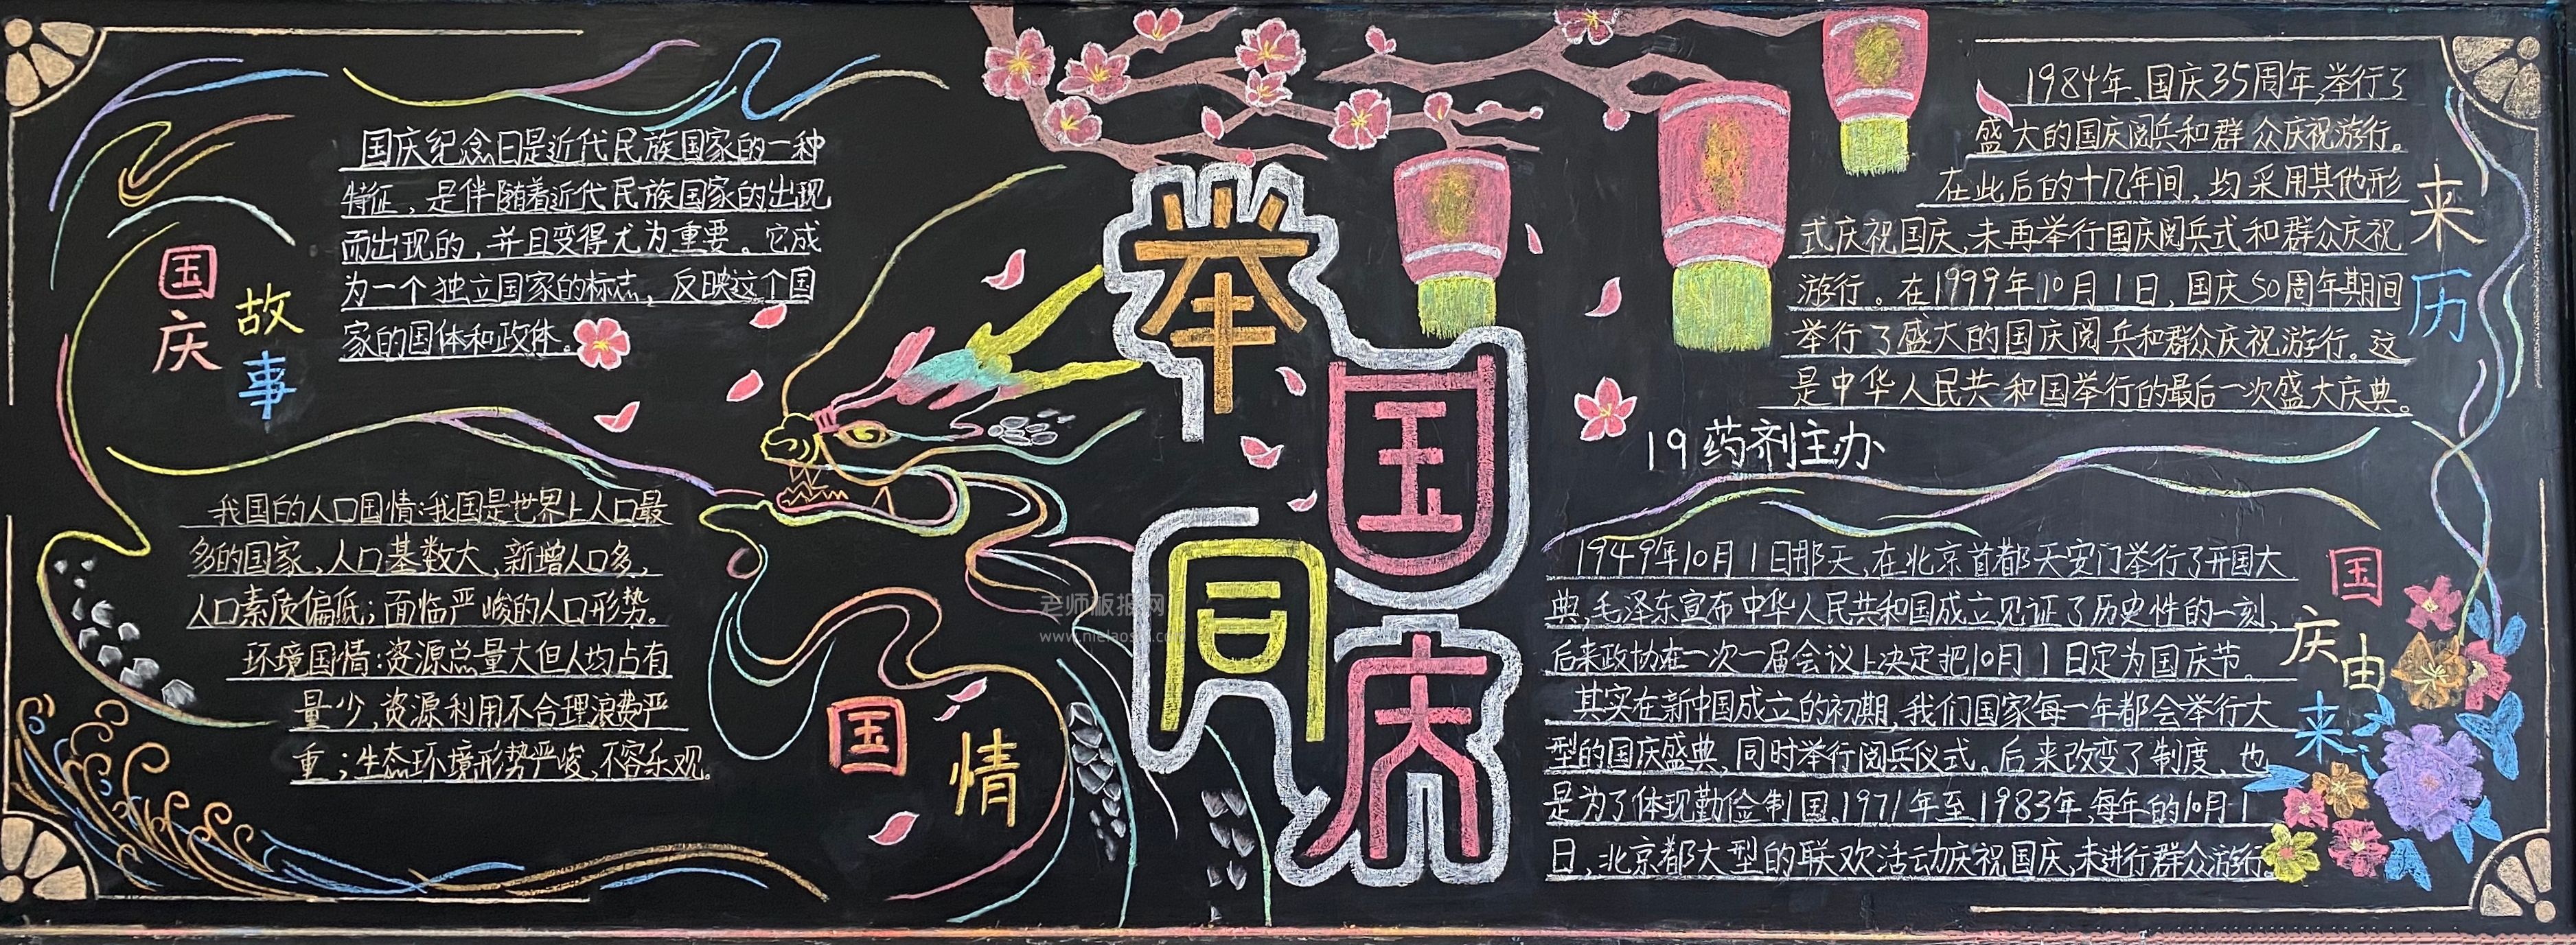 国庆纪念日是近代民族国家的一种
特征，是伴随着近代民族国家的出现
而出现的，并且变得尤为重要。它成
为一个独立国家的标志，反映这个国
家的国体和政体。
国庆
故事
我国的人口国情:我国是世界上人口最
多的国家、人口基数大，新增人口多，
人口素质偏低；面临严峻的人口形势。
环境国情:资源总量大但人均占有
量少，资源利用不合理浪费严
重；生态环境形势严峻，不容乐观。
国情
举国同庆
老师板报网
1984年，国庆35周年，举行了
盛大的国庆阅兵和群众庆祝游行。
在此后的十几年间，均采用其他形
式庆祝国庆，未再举行国庆阅兵式和群众庆祝
游行。在1999年10月1日，国庆50周年期间
举行了盛大的国庆阅兵和群众庆祝游行。这
是中华人民共和国举行的最后一次盛大庆典。
来历
19药剂主办
1949年10月1日那天，在北京首都天安门举行了开国大
典，毛泽东宣布中华人民共和国成立见证了历史性的一刻，
后来政协在一次一届会议上决定把10月1日定为国庆节。
其实在新中国成立的初期，我们国家每一年都会举行大
型的国庆盛典，同时举行阅兵仪式。后来改变了制度，也
是为了体现勤俭制国。1971年至1983年，每年的10月1
日，北京都大型的联欢活动庆祝国庆，未进行群众游行。
国庆由来